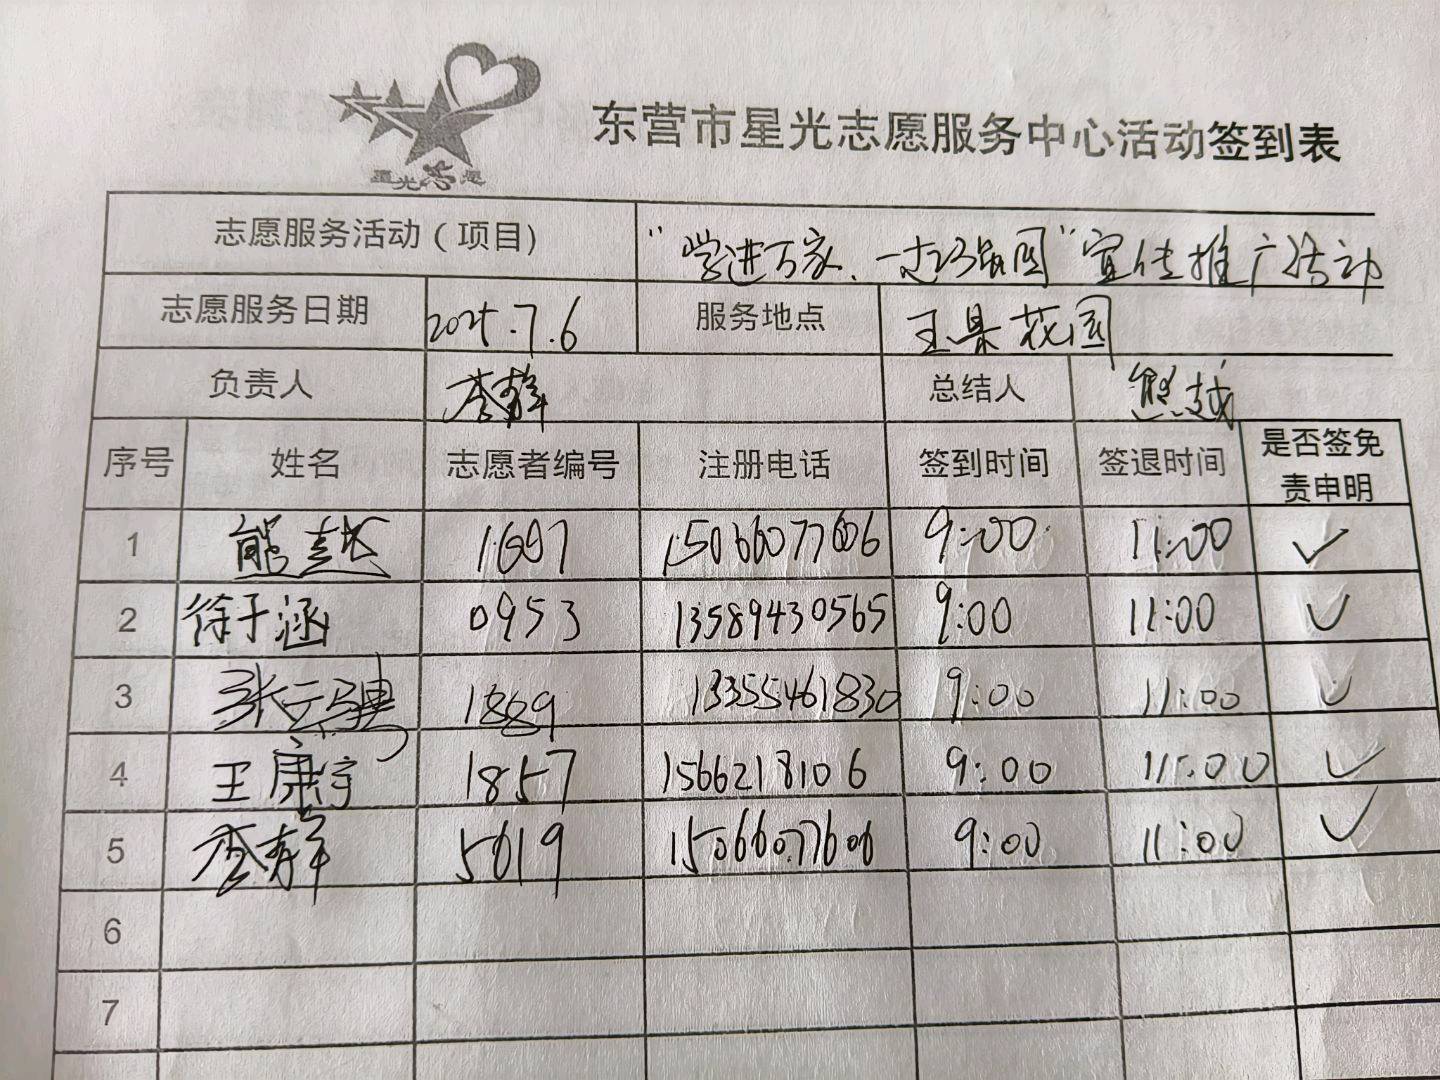 星光志愿
东营市星光志愿服务中心活动签到表
志愿服务活动（项目） “学进万家、一起强国”宣传推广活动
志愿服务日期 2025.7.6 服务地点 玉景花园
负责人 李静 总结人 熊越
序号 姓名 志愿者编号 注册电话 签到时间 签退时间 是否签免责申明
1 熊越 1697 15066077606 9:00 11:00 ✓
2 徐子涵 0953 13589430565 9:00 11:00 ✓
3 张云骢 1889 13355461830 9:00 11:00 ✓
4 王康宇 1857 15662178106 9:00 11:00 ✓
5 李静 5619 15066077606 9:00 11:00 ✓
6
7